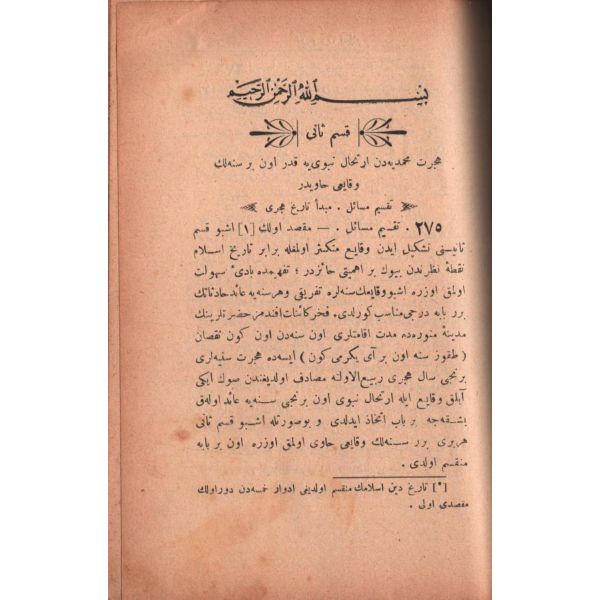 بسم الله الرحمن الرحيم
قسم ثانی
هجرت محمدیه‌دن ارتحال نبوی‌یه قدر اون بر سنه‌لك
وقایعی حاویدر
تقسیم مسائل . مبدأ تاریخ هجری
٢٧٥ . تقسیم مسائل . — مقصد اولك [١] اشبو قسم
ثانیسنی تشکیل ایدن وقایع متکثر اولمغله برابر تاریخ اسلام
نقطهٔ نظرندن بیوك بر اهمیتی حائزدر ؛ تفهمده بادیٔ سهولت
اولمق اوزره اشبو وقایعك سنه‌لره تفریقی و هر سنه‌یه عائد حادثاتك
بر بابه درجی مناسب کورلدی . فخر کائنات افندمز حضرتلرینك
مدینهٔ منوره‌ده مدت اقامتلری اون سنه‌دن اون کون نقصان
( طقوز سنه اون بر آی یکرمی کون ) ایسه‌ده هجرت سنیه‌لری
برنجی سال هجری ربیع الاولنه مصادف اولدیغندن صوك ایکی
آیلق وقایع ایله ارتحال نبوی اون برنجی سنه‌یه عائد اوله‌رق
بشقه‌جه بر باب اتخاذ ایدلدی و بوصورتله اشبو قسم ثانی
هربری برر سنه‌لك وقایعی حاوی اولمق اوزره اون بر بابه
منقسم اولدی .
[*] تاریخ دین اسلامك منقسم اولدیغی ادوار خمسه‌دن دور اولك
مقصدی اولی .